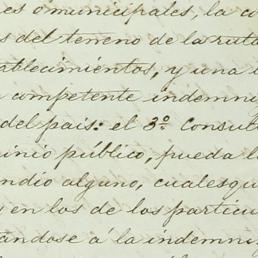 es o municipales, la co
s del terreno de la ruta
tablecimientos, y una
competente indemni
del pais: el 3º. Consult
inio público, pueda l
ndio alguno, cualesqu
en los de los particu
tándose á la indemni